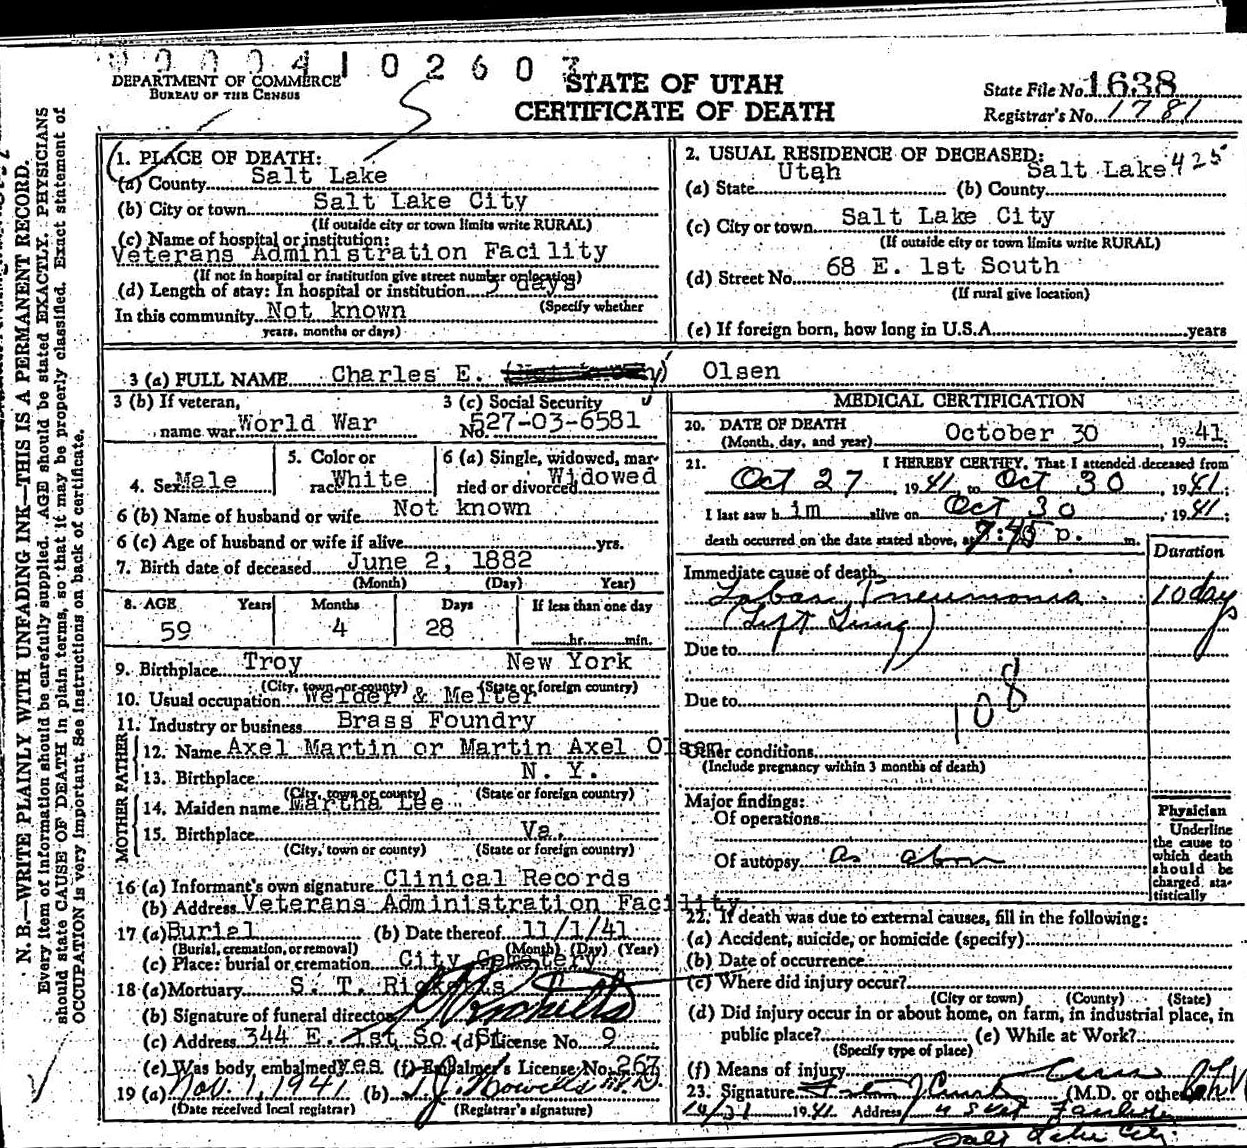 0 0 0 0 4 1 0 2 6 0 3
DEPARTMENT OF COMMERCE
BUREAU OF THE CENSUS
STATE OF UTAH
CERTIFICATE OF DEATH
State File No. 1638
Registrar's No. 1781
N. B.—WRITE PLAINLY WITH UNFADING INK—THIS IS A PERMANENT RECORD.
Every item of information should be carefully supplied. AGE should be stated EXACTLY. PHYSICIANS
should state CAUSE OF DEATH in plain terms, so that it may be properly classified. Exact statement of
OCCUPATION is very important. See instructions on back of certificate.
1. PLACE OF DEATH:
(a) County Salt Lake
(b) City or town Salt Lake City
(If outside city or town limits write RURAL)
(c) Name of hospital or institution:
Veterans Administration Facility
(If not in hospital or institution give street number or location)
(d) Length of stay: In hospital or institution 3 days
(Specify whether
In this community Not known
years, months or days)
2. USUAL RESIDENCE OF DECEASED:
(a) State Utah (b) County Salt Lake 425
(c) City or town Salt Lake City
(If outside city or town limits write RURAL)
(d) Street No. 68 E. 1st South
(If rural give location)
(e) If foreign born, how long in U.S.A. years
3 (a) FULL NAME Charles E. Olsen
3 (b) If veteran,
name war World War
3 (c) Social Security
No. 527-03-6581
4. Sex Male
5. Color or
race White
6 (a) Single, widowed, mar-
ried or divorced Widowed
6 (b) Name of husband or wife Not known
6 (c) Age of husband or wife if alive yrs.
7. Birth date of deceased June 2, 1882
(Month) (Day) Year)
8. AGE Years Months Days If less than one day
59 4 28 hr. min.
9. Birthplace Troy New York
(City, town, or county) (State or foreign country)
10. Usual occupation Welder & Melter
11. Industry or business Brass Foundry
FATHER
12. Name Axel Martin or Martin Axel Olsen
13. Birthplace N. Y.
(City, town or county) (State or foreign country)
MOTHER
14. Maiden name Martha Lee
15. Birthplace Va.
(City, town or county) (State or foreign country)
16 (a) Informant's own signature Clinical Records
(b) Address Veterans Administration Facility
17 (a) Burial (b) Date thereof 11/1/41
(Burial, cremation, or removal) (Month) (Day) (Year)
(c) Place: burial or cremation City Cemetery
18 (a) Mortuary S. T. Ricketts
(b) Signature of funeral director
(c) Address 344 E. 1st So. St. (d) License No. 9
(e) Was body embalmed yes (f) Embalmer's License No. 267
19 (a) Nov. 1, 1941 (b) T. J. Howells M.D.
(Date received local registrar) (Registrar's signature)
MEDICAL CERTIFICATION
20. DATE OF DEATH
(Month, day, and year) October 30, 1941
21. I HEREBY CERTIFY, That I attended deceased from
Oct 27 1941 to Oct 30, 1941;
I last saw him alive on Oct 30, 1941;
death occurred on the date stated above, at 7:45 p. m.
Duration
Immediate cause of death
Lobar Pneumonia 10 days
(Left Lung)
Due to
108
Due to
Other conditions
(Include pregnancy within 3 months of death)
Major findings:
Of operations
Of autopsy as above
Physician
Underline
the cause to
which death
should be
charged sta-
tistically
22. If death was due to external causes, fill in the following:
(a) Accident, suicide, or homicide (specify)
(b) Date of occurrence
(c) Where did injury occur?
(City or town) (County) (State)
(d) Did injury occur in or about home, on farm, in industrial place, in
public place? (e) While at Work?
(Specify type of place)
(f) Means of injury
23. Signature (M.D. or other)
10/31 1941 Address U S Vet Facility
Salt Lake City